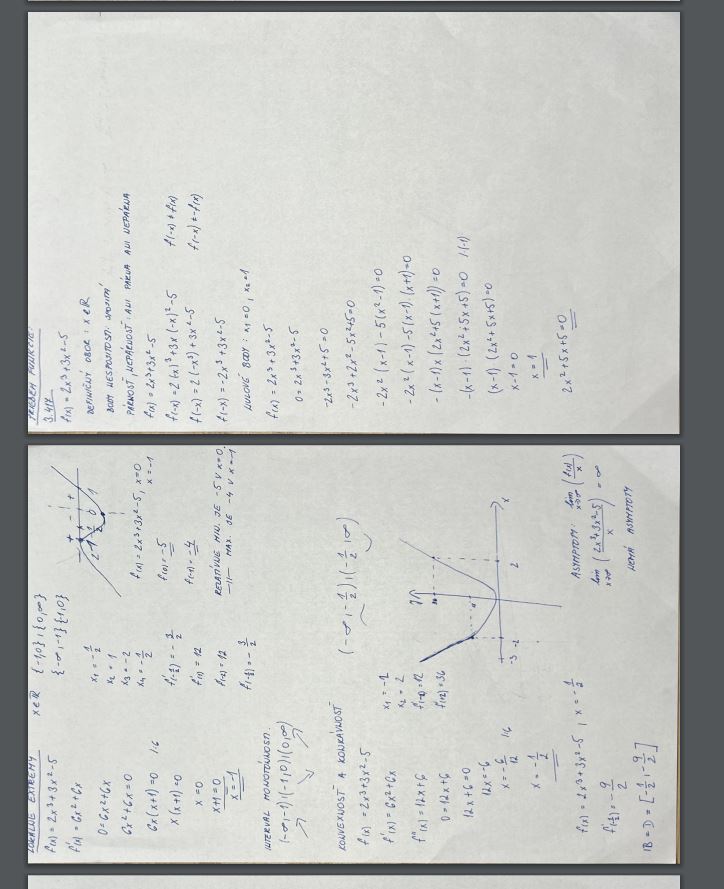 PRIEBEH FUNKCIE:
3.41X
f(x) = 2x³+3x²-5
DEFINIČNÝ OBOR: x∈R
BODY NESPOJITOSTI: SPOJITÁ
PÁRNOSŤ, NEPÁRNOSŤ: ANI PÁRNA ANI NEPÁRNA
f(x) = 2x³+3x²-5
f(-x) = 2(-x)³+3x(-x)²-5 f(-x) ≠ f(x)
f(-x) = 2(-x³)+3x²-5 f(-x) ≠ -f(x)
f(-x) = -2x³+3x²-5
NULOVÉ BODY: x₁=0, x₂=1
f(x) = 2x³+3x²-5
0 = 2x³+3x²-5
-2x³-3x²+5=0
-2x³+2x²-5x²+5=0
-2x²(x-1)-5(x²-1)=0
-2x²(x-1)-5(x-1)·(x+1)=0
-(x-1)x(2x²+5(x+1))=0
-(x-1)·(2x²+5x+5)=0 /·(-1)
(x-1)·(2x²+5x+5)=0
x-1=0
x=1
2x²+5x+5=0
LOKÁLNE EXTRÉMY x∈R {-1,0},{0,∞}
{-∞,-1}{1,0}
f(x) = 2x³+3x²-5
f'(x) = 6x²+6x
0=6x²+6x
6x²+6x=0
6x(x+1)=0 /:6
x(x+1)=0
x=0
x+1=0
x=-1
x₁=-1/2
x₂=1
x₃=-2
x₄=-1/2
f'(-1/2)=-3/2
f'(1)=12
f'(-2)=12
f'(-1/2)=-3/2
f(x) = 2x³+3x²-5, x=0
x=-1
f(0)=-5
f(-1)=-4
RELATÍVNE MIN. JE -5 V x=0
—||— MAX. JE -4 V x=-1
INTERVAL MONOTÓNNOSTI:
(-∞,-1)(-1,0)(0,∞)
KONVEXNOSŤ A KONKÁVNOSŤ
(-∞,-1/2),(-1/2,∞)
f(x) = 2x³+3x²-5
f'(x) = 6x²+6x
f''(x) = 12x+6
0=12x+6
12x+6=0
12x=-6
x=-6/12 /:6
x=-1/2
x₂=2
y
x
-3 -2 2
f(x) = 2x³+3x²-5, x=-1/2
f(-1/2)=-9/2
IB=D=[-1/2,-9/2]
ASYMPTOTY: lim x→∞ (f(x)/x)
lim x→∞ (2x³+3x²-5/x) = ∞
NEMÁ ASYMPTOTY